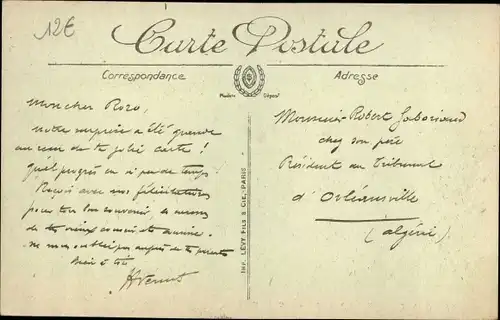 12€
Carte Postale
Correspondance
Adresse
Modèle Déposé
Mon cher Bozo,
notre surprise a été grande
au reçu de ta jolie carte !
Quel progrès en si peu de temps !
Reçois avec nos félicitations
pour ton bon souvenir,
de ta vieux
ne nous oublie pas auprès de tes parents
Bien à toi
IMP. LEVY FILS & CIE, PARIS
Monsieur Robert Gaboriaud
chez son père
Président au Tribunal
d'Orléansville
(Algérie)